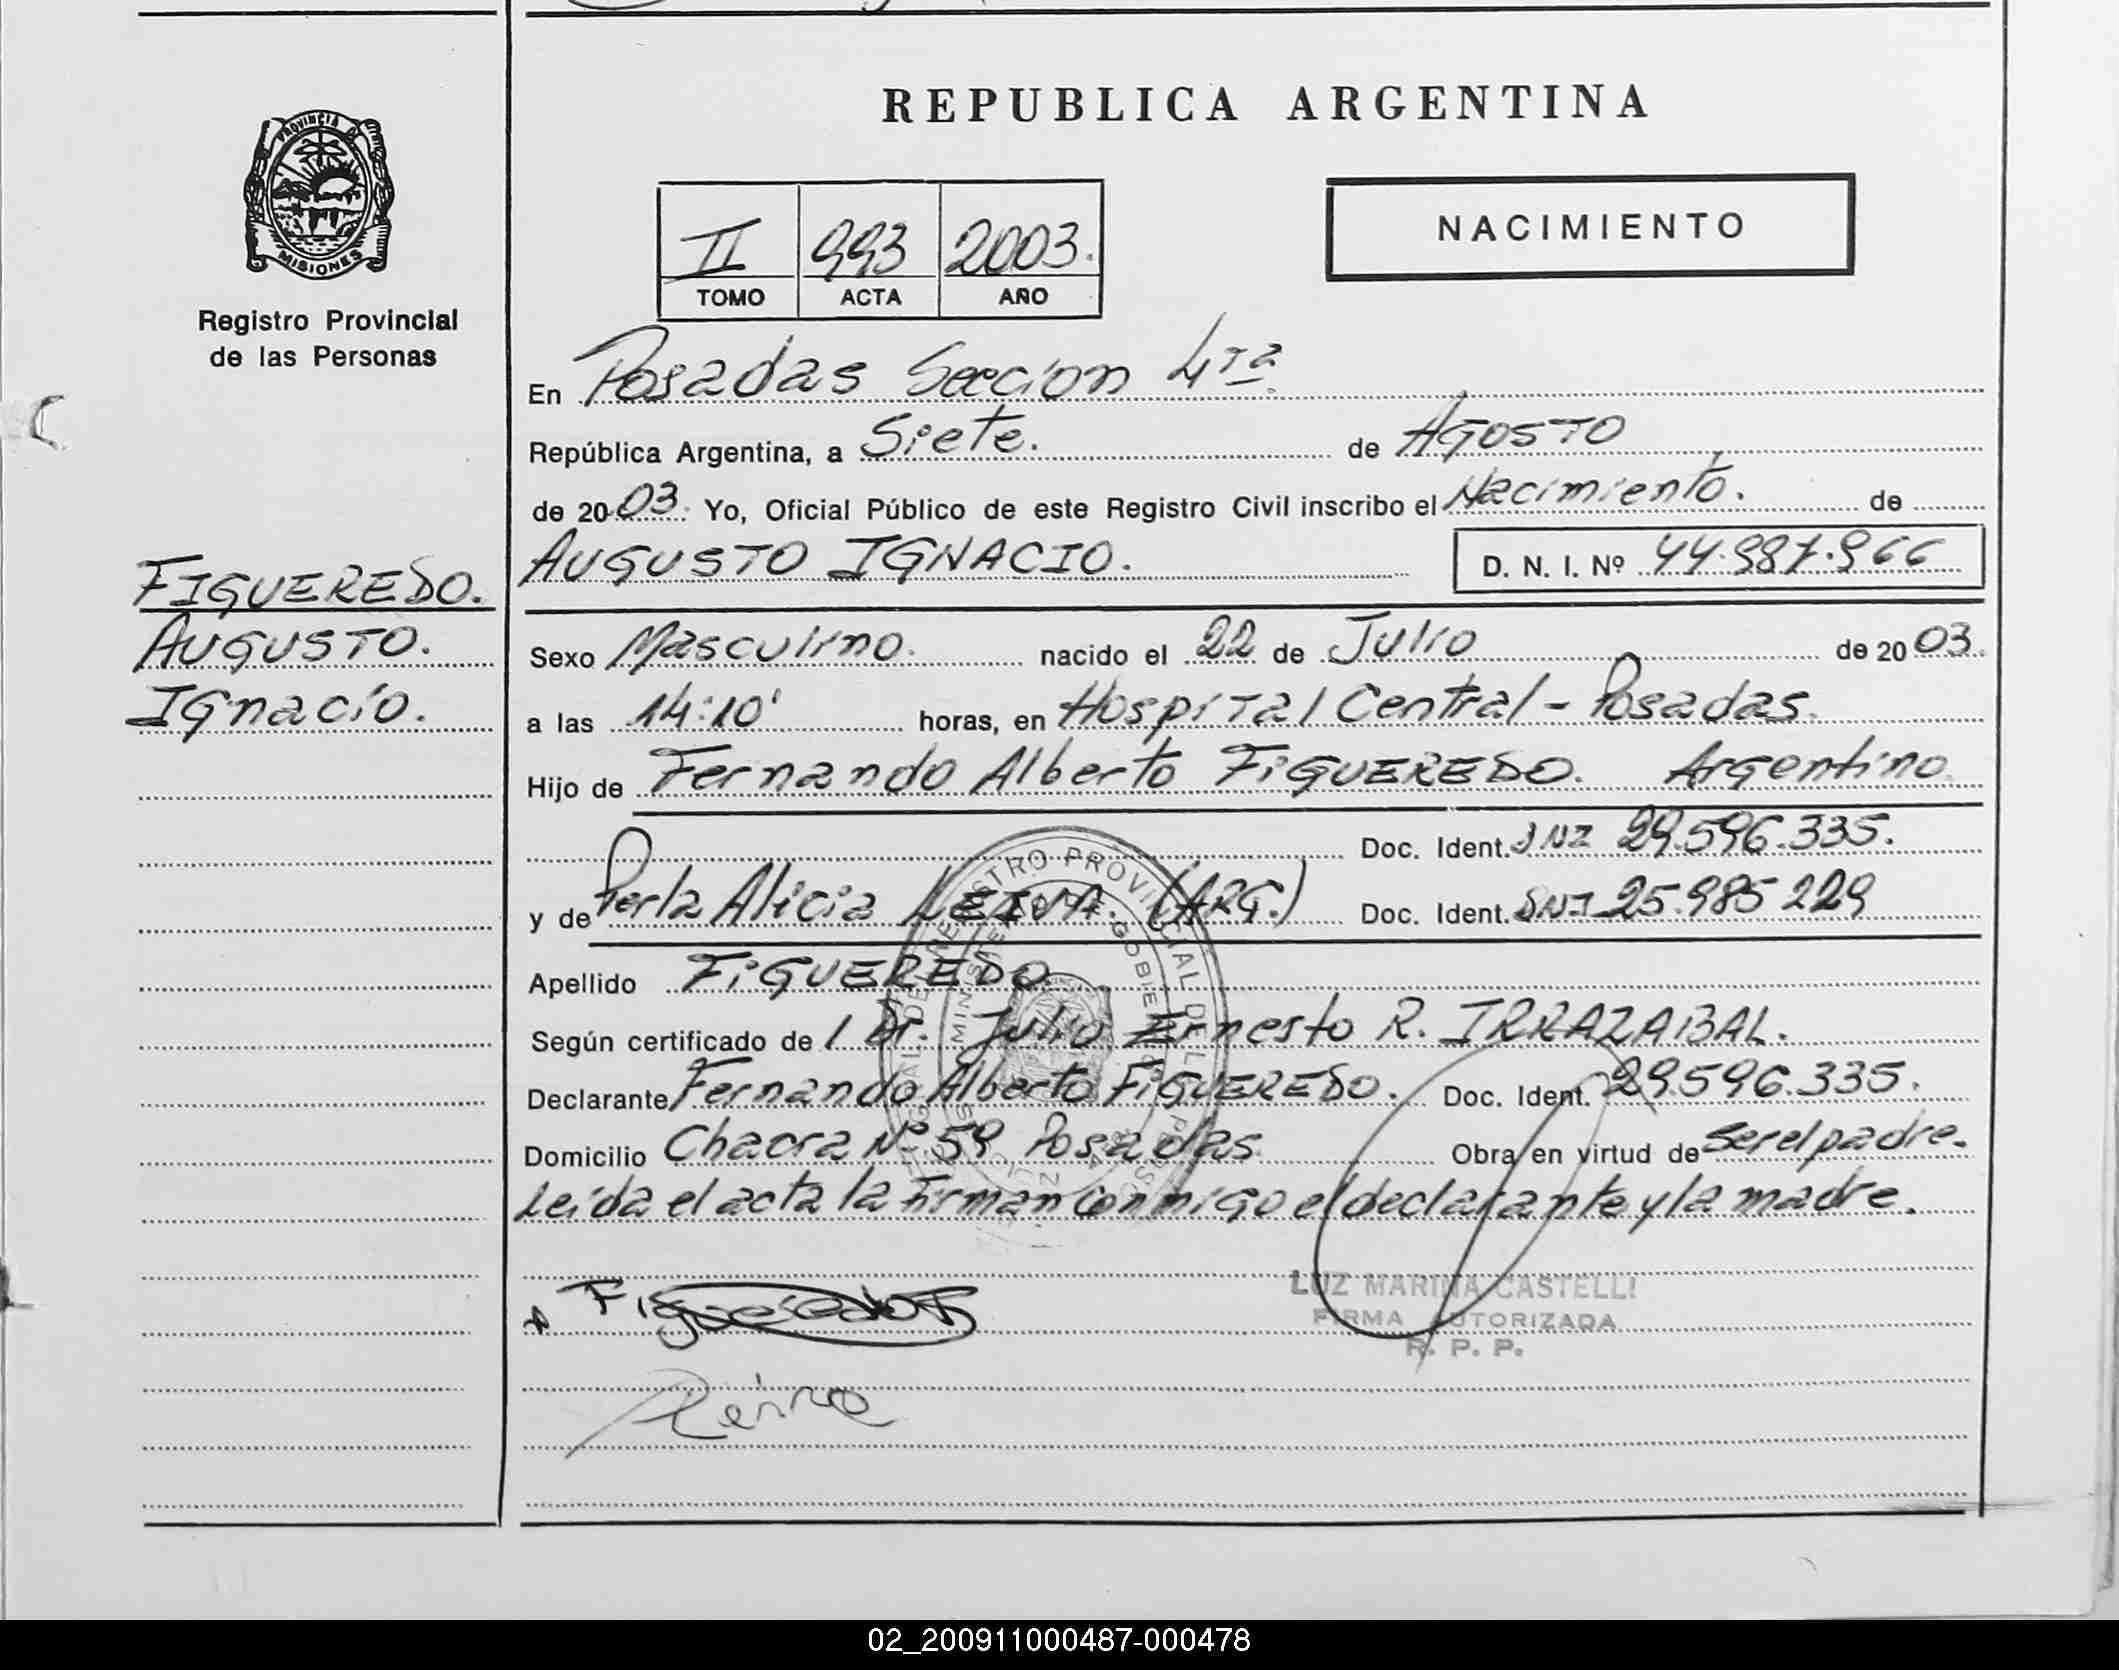 REPUBLICA ARGENTINA
PROVINCIA DE
MISIONES
Registro Provincial
de las Personas
NACIMIENTO
II 993 2003.
TOMO ACTA AÑO
En Posadas Seccion 4ta.
República Argentina, a Siete. de AGOSTO
de 2003. Yo, Oficial Público de este Registro Civil inscribo el Nacimiento. de
AUGUSTO IGNACIO. D. N. I. Nº 44.987.966
FIGUEREDO.
AUGUSTO.
IGnacio.
Sexo Masculino. nacido el 22 de Julio de 2003.
a las 14:10' horas, en Hospital Central - Posadas.
Hijo de Fernando Alberto FiGUEREDO. Argentino
Doc. Ident. DNI 29.596.335.
y de Perla Alicia LEIVA. (ARG.) Doc. Ident. DNI 25.985 229
Apellido FiGUEREDO.
Según certificado de / Dr. Julio Ernesto R. IRRAZABAL.
Declarante Fernando Alberto FiGUEREDO. Doc. Ident. 29.596.335.
Domicilio Chacra Nº 59 Posadas Obra en virtud de ser el padre.
Leida el acta la Firman conmigo el declarante y la madre.
REGISTRO PROVINCIAL DE LAS PERSONAS
LUZ MARINA CASTELLI
FIRMA AUTORIZADA
R. P. P.
Figueredo F
02_200911000487-000478